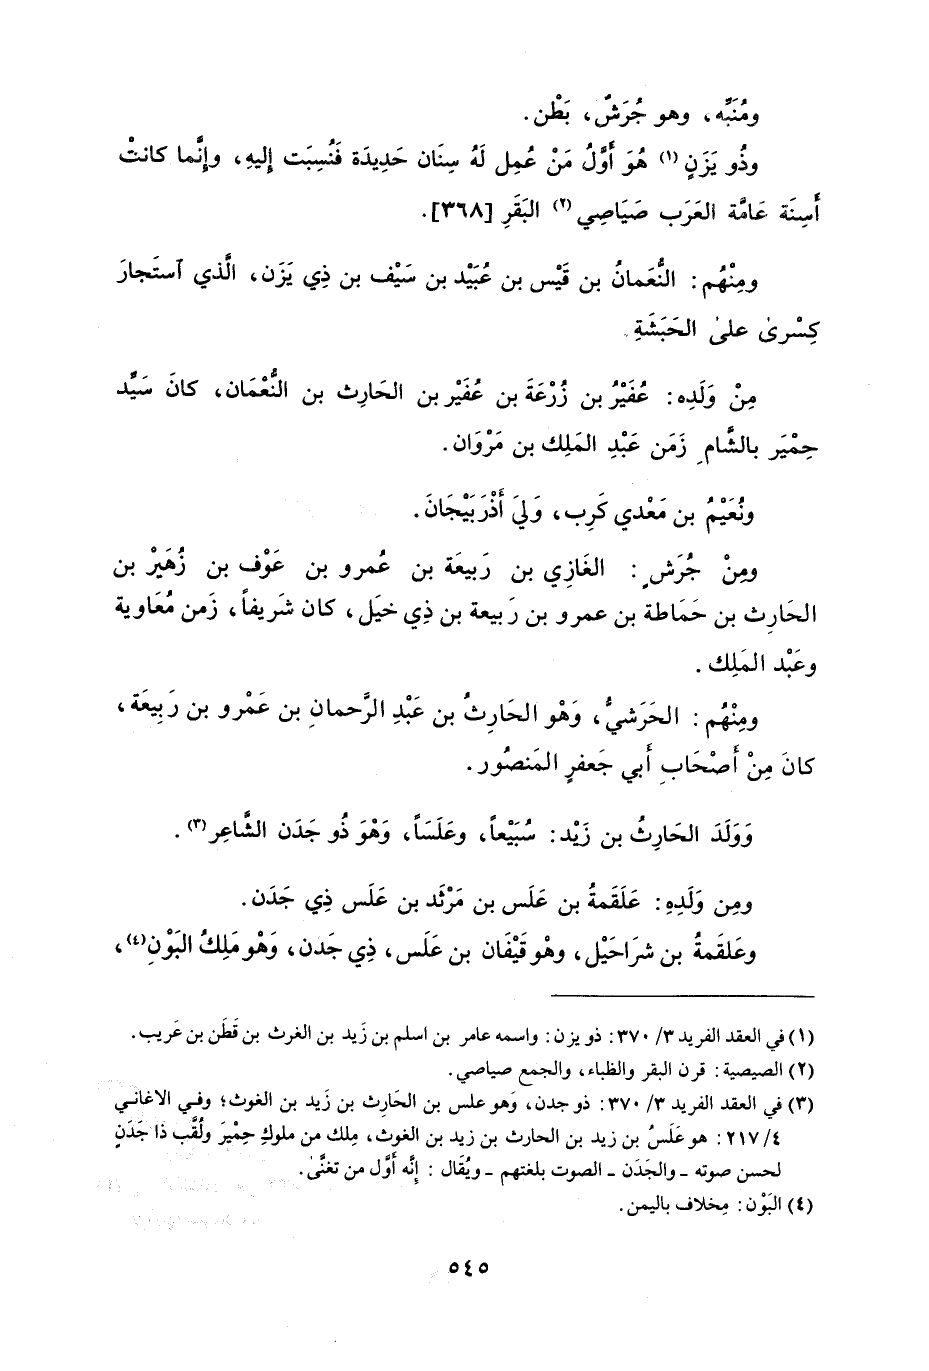 ومُنَبِّه، وهو جُرَشٌ، بَطْن.
وذُو يَزَنٍ (١) هُوَ أَوَّلُ مَنْ عُمِل لَهُ سِنَان حَدِيدَة فَنُسِبَت إِليهِ، وإِنَّما كانتْ
أَسِنَة عَامَّة العَرَب صَيَاصِي (٢) البَقَرِ [٣٦٨].
ومِنْهُم: النُّعَمانُ بن قَيْس بن عُبَيْد بن سَيْف بن ذِي يَزَن، الَّذي آستَجارَ
كِسْرىٰ علىٰ الحَبَشَةِ
مِنْ وَلَدِه: عُفَيْرُ بن زُرْعَةَ بن عُفَيْر بن الحَارِث بن النُّعْمَان، كانَ سَيِّد
حِمْيَر بالشَّامِ زَمَن عَبْدِ المَلِك بن مَرْوَان.
ونُعَيْمُ بن مَعْدي كَرِب، وَلِيَ أَذْرَبِيْجَانَ.
ومِنْ جُرَشٍ: الغَازِي بن رَبِيعَة بن عُمرو بن عَوْف بن زُهَيْر بن
الحَارِث بن حَمَاطة بن عمرو بن رَبيعة بن ذِي خَيَل، كان شَريفاً، زَمن مُعَاوية
وعَبْد المَلِك.
ومِنْهُم: الحَرَشيُّ، وَهْو الحَارِثُ بن عَبْدِ الرَّحمانِ بن عَمْرو بن رَبِيعَة،
كانَ مِنْ أَصْحَابِ أَبي جَعفرٍ المَنصُور.
وَوَلَدَ الحَارِثُ بن زَيْد: سُبَيْعاً، وعَلَسَاً، وَهْوَ ذُو جَدَن الشَّاعِر (٣).
ومِن وَلَدِهِ: عَلَقمةُ بن عَلَس بن مَرْثَد بن عَلَس ذِي جَدَن.
وعَلقمةُ بن شرَاحَيْل، وهْو قَيْفَان بن عَلَس، ذِي جَدن، وَهْو مَلِكُ البَوْنِ (٤)،
(١) في العقد الفريد ٣/ ٣٧٠: ذو يزن: واسمه عامر بن اسلم بن زَيد بن الغرث بن قَطَن بن عَريب.
(٢) الصيصية: قرن البقر والظباء، والجمع صياصي.
(٣) في العقد الفريد ٣/ ٣٧٠: ذو جدن، وَهو علس بن الحَارِث بن زَيد بن الغوث؛ وفي الاغاني
٤/ ٢١٧: هو عَلَسُ بن زيد بن الحارث بن زيد بن الغوث، مِلك من ملوكِ حِمْيَر ولُقَّب ذا جَدَنٍ
لحسن صوته ـ والجَدَن ـ الصوت بلغتهم ـ ويُقَال: إِنَّه أَوَّل من تغنَّىٰ.
(٤) البَوْن: مِخلاف باليمن.
٥٤٥